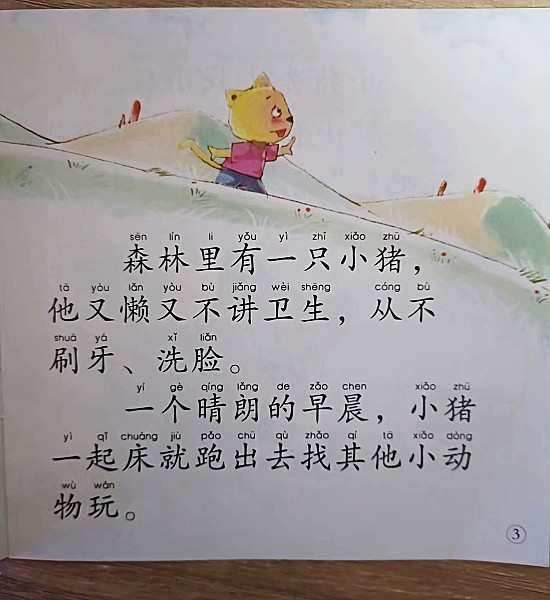 sēn lín li yǒu yì zhī xiǎo zhū
森林里有一只小猪，
tā yòu lǎn yòu bù jiǎng wèi shēng cóng bù
他又懒又不讲卫生，从不
shuā yá xǐ liǎn
刷牙、洗脸。
yí gè qíng lǎng de zǎo chen xiǎo zhū
一个晴朗的早晨，小猪
yì qǐ chuáng jiù pǎo chū qù zhǎo qí tā xiǎo dòng
一起床就跑出去找其他小动
wù wán
物玩。
3